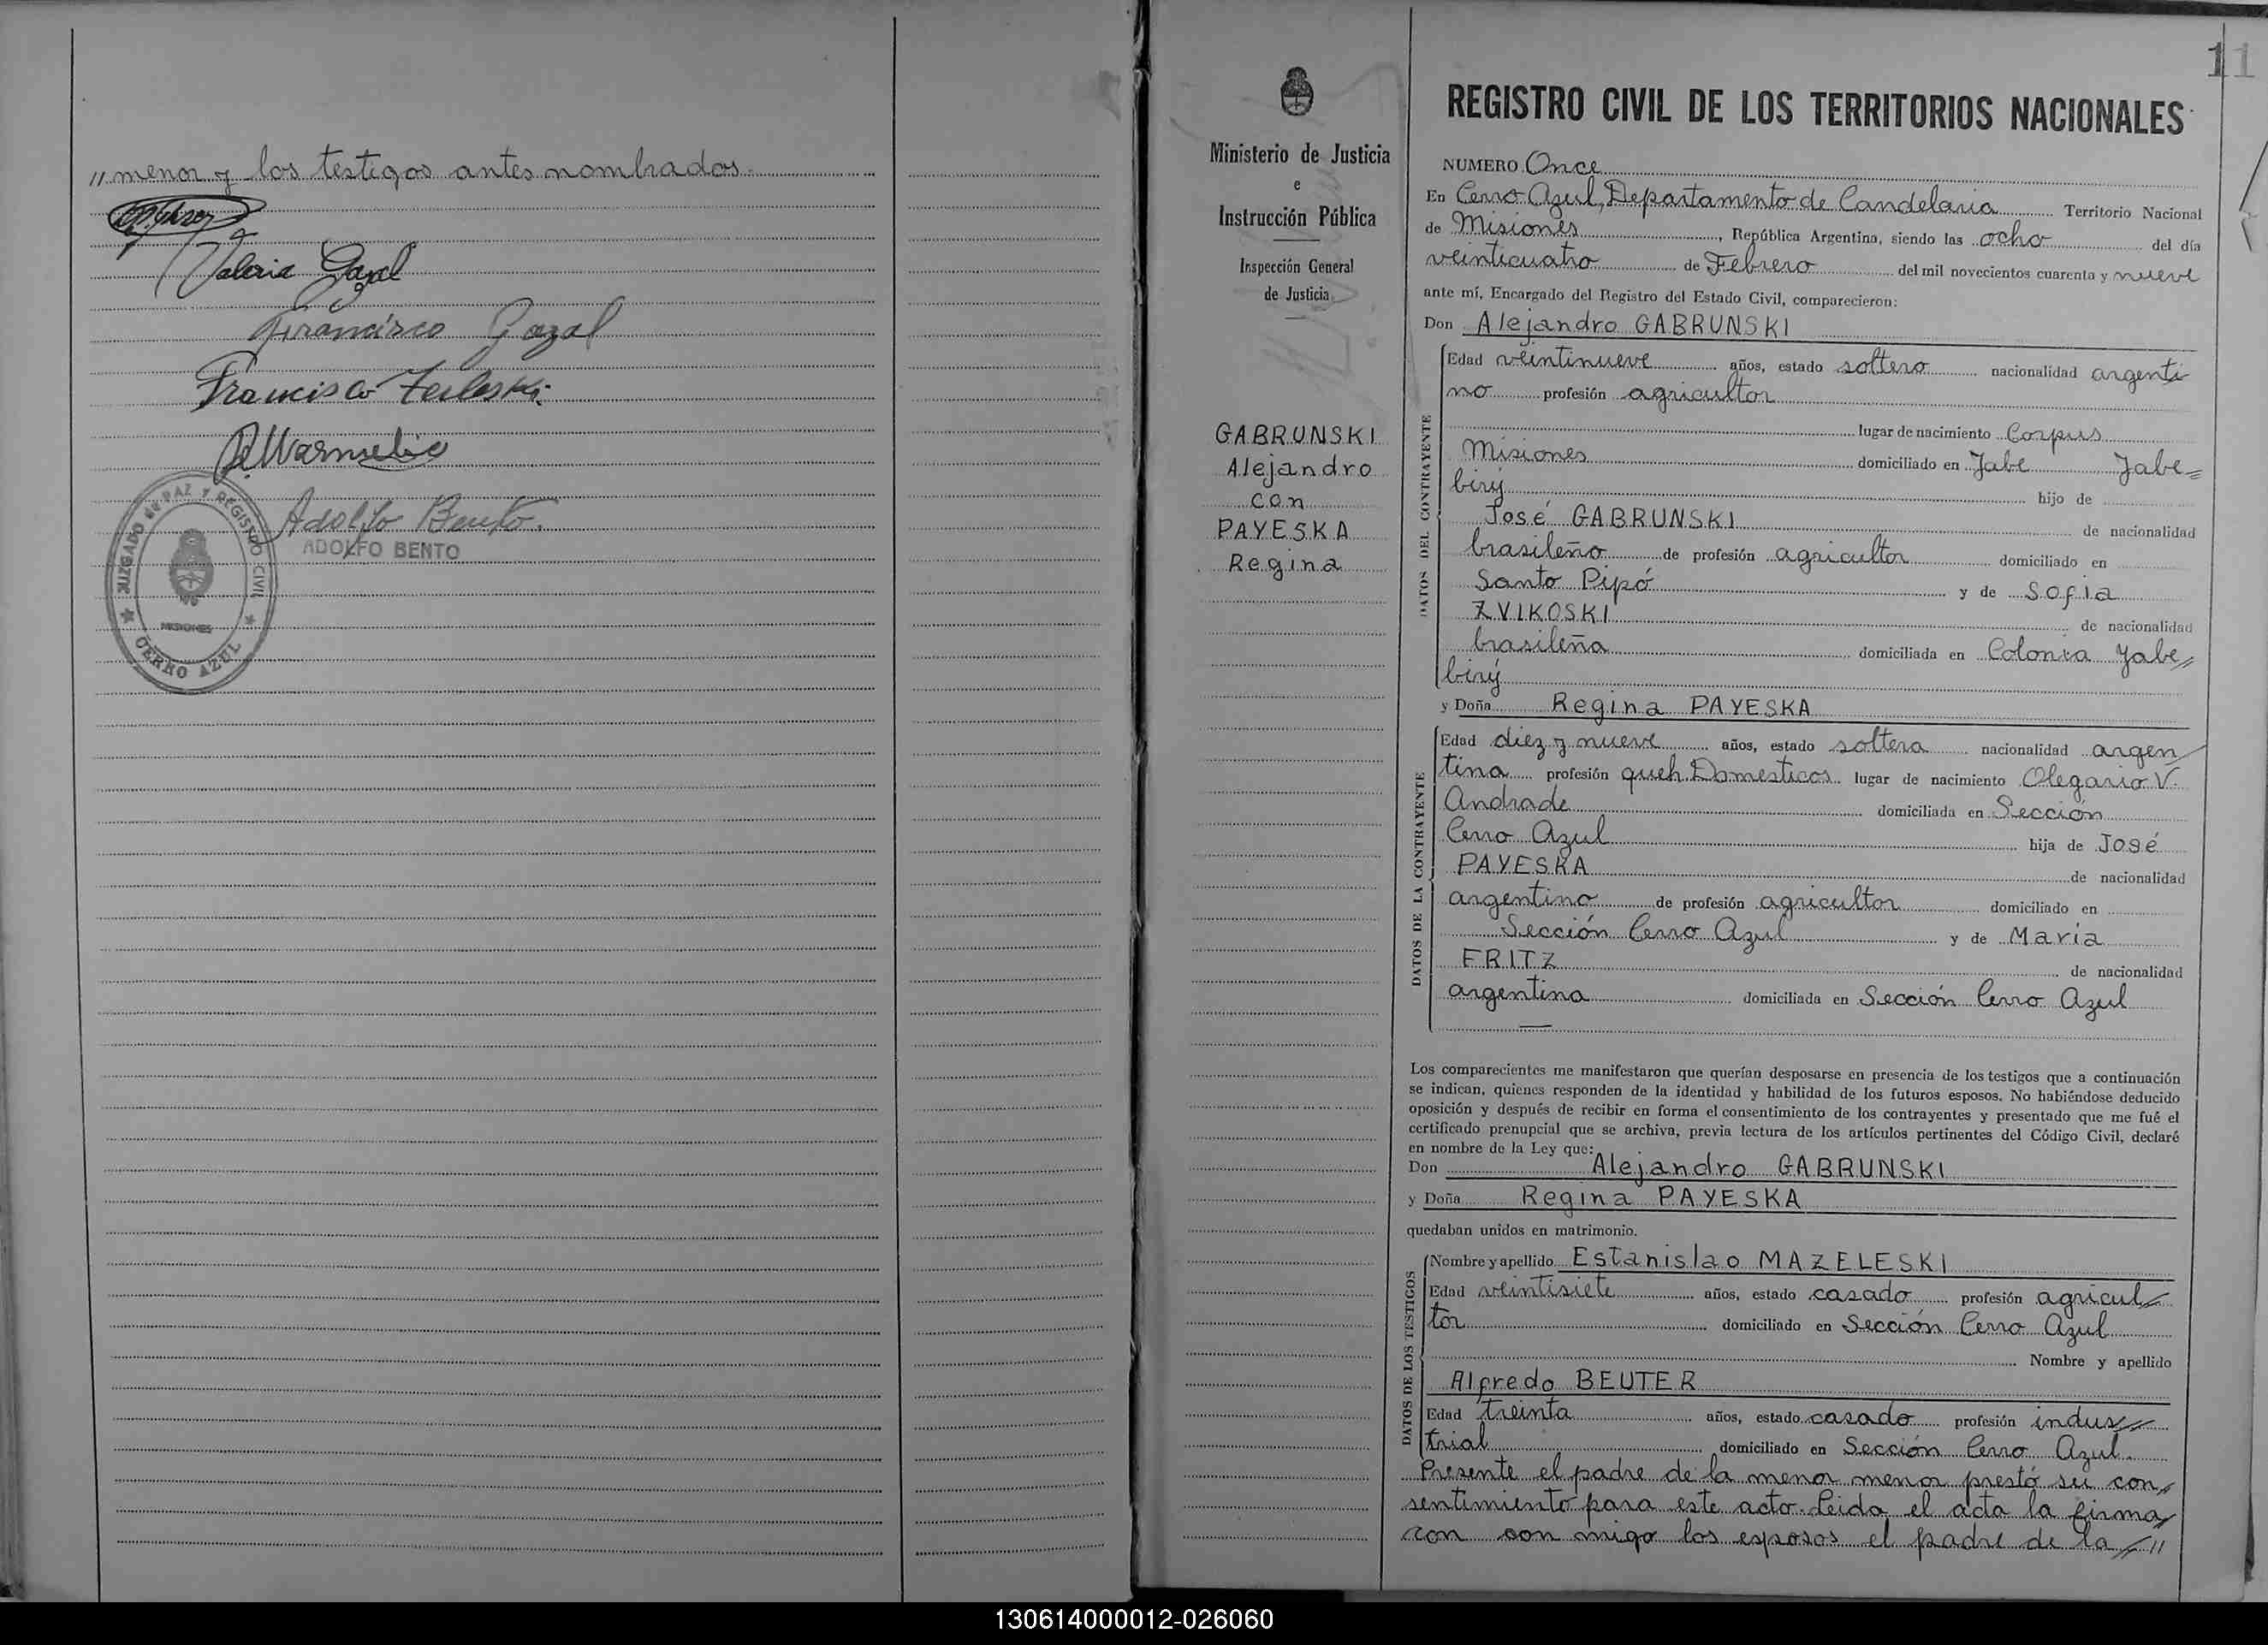 〃menor y los testigos antes nombrados.
Valeria Gazal
Francisco Gazal
Francisco
Adolfo Bento.
ADOLFO BENTO
JUZGADO de PAZ Y REGISTRO CIVIL
MISIONES
CERRO AZUL
11
Ministerio de Justicia
e
Instrucción Pública
Inspección General
de Justicia
GABRUNSKI
Alejandro
con
PAYESKA
Regina
REGISTRO CIVIL DE LOS TERRITORIOS NACIONALES
NUMERO Once
En Cerro Azul, Departamento de Candelaria Territorio Nacional
de Misiones, República Argentina, siendo las ocho del día
veinticuatro de Febrero del mil novecientos cuarenta y nueve
ante mí, Encargado del Registro del Estado Civil, comparecieron:
Don Alejandro GABRUNSKI
DATOS DEL CONTRAYENTE
Edad veintinueve años, estado soltero nacionalidad argenti
no profesión agricultor
lugar de nacimiento Corpus
Misiones domiciliado en Jabe Yabe=
biry hijo de
José GABRUNSKI de nacionalidad
brasileño de profesión agricultor domiciliado en
Santo Pipó y de Sofia
ZVIKOSKI de nacionalidad
brasileña domiciliada en Colonia Yabe〃
biry
y Doña Regina PAYESKA
DATOS DE LA CONTRAYENTE
Edad diez y nueve años, estado soltera nacionalidad argen
tina profesión queh. Domesticos lugar de nacimiento Olegario V.
Andrade domiciliada en Sección
Cerro Azul hija de José
PAYESKA de nacionalidad
argentino de profesión agricultor domiciliado en
Sección Cerro Azul y de María
FRITZ de nacionalidad
argentina domiciliada en Sección Cerro Azul
Los comparecientes me manifestaron que querían desposarse en presencia de los testigos que a continuación
se indican, quienes responden de la identidad y habilidad de los futuros esposos. No habiéndose deducido
oposición y después de recibir en forma el consentimiento de los contrayentes y presentado que me fué el
certificado prenupcial que se archiva, previa lectura de los artículos pertinentes del Código Civil, declaré
en nombre de la Ley que:
Don Alejandro GABRUNSKI
y Doña Regina PAYESKA
quedaban unidos en matrimonio.
DATOS DE LOS TESTIGOS
Nombre y apellido Estanislao MAZELESKI
Edad veintisiete años, estado casado profesión agricul〃
tor domiciliado en Sección Cerro Azul
Nombre y apellido
Alfredo BEUTER
Edad treinta años, estado casado profesión indus〃
trial domiciliado en Sección Cerro Azul.
Presente el padre de la menor menor prestó su con〃
sentimiento para este acto. Leida el acta la firma〃
ron con migo los esposos el padre de la 〃
130614000012-026060